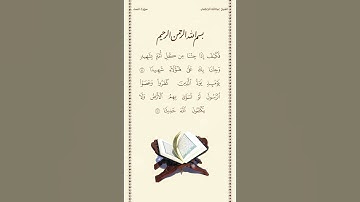 بسم الله الرحمن الرحيم
فَكَيْفَ إِذَا جِئْنَا مِن كُلِّ أُمَّةٍ بِشَهِيدٍ
وَجِئْنَا بِكَ عَلَىٰ هَٰؤُلَاءِ شَهِيدًا
يَوْمَئِذٍ يَوَدُّ الَّذِينَ كَفَرُوا وَعَصَوُا
الرَّسُولَ لَوْ تُسَوَّىٰ بِهِمُ الْأَرْضُ وَلَا
يَكْتُمُونَ اللَّهَ حَدِيثًا